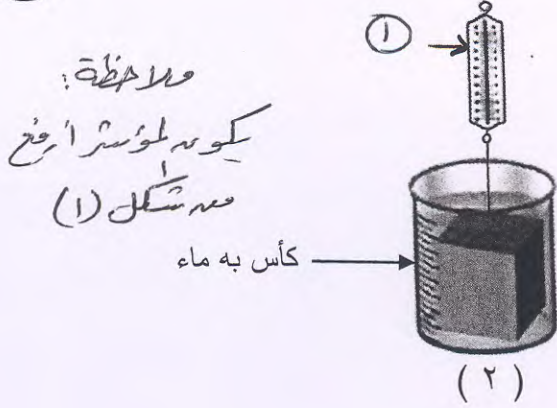 ١
ملاحظة:
يكون المؤشر أرفع
من شكل (١)
كأس به ماء
( ٢ )